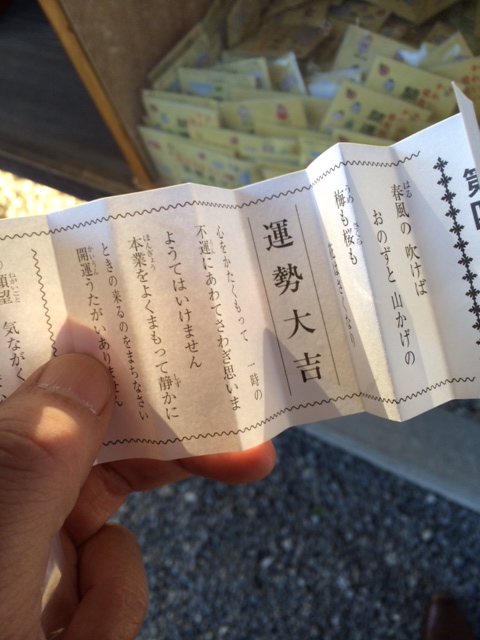 第
春風の 吹けば
おのずと 山かげの
梅も桜も
運勢大吉
心をかたくもって 一時の
不運にあわてさわぎ思いま
ようてはいけません
本業をよくまもって静かに
ときの来るのをまちなさい
開運うたがいありません
願望 気ながく